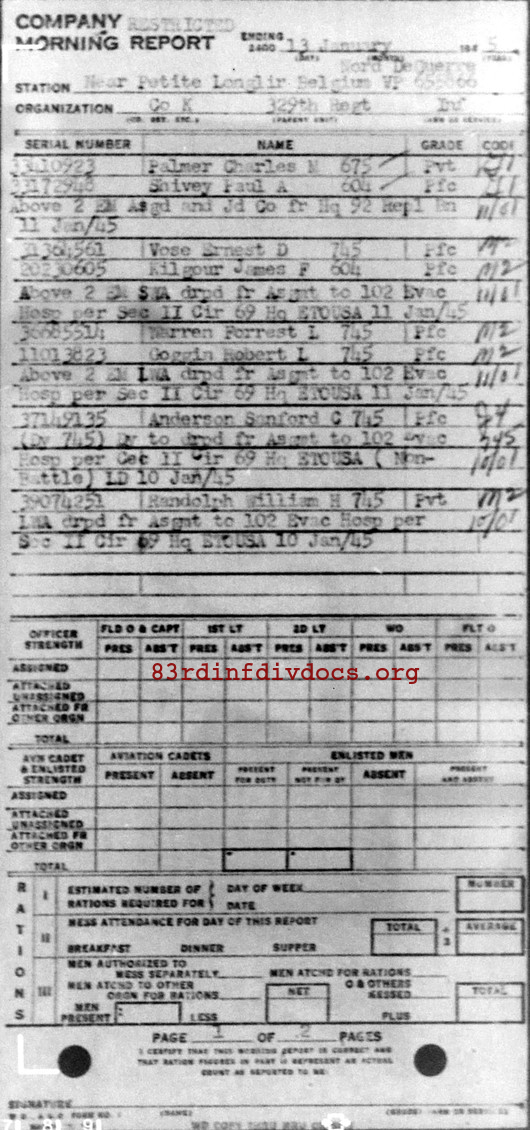 COMPANY RESTRICTED
MORNING REPORT ENDING 2400 13 January 194 5
Nord DeQuerre
STATION Near Petite Longlir Belgium VP 655866
ORGANIZATION Co K 329th Regt Inf
SERIAL NUMBER NAME GRADE CODE
33410923 Palmer Charles M 675 Pvt
33172948 Shivey Paul A 604 Pfc
Above 2 EM Asgd and Jd Co fr Hq 92 Repl Bn 11/01
11 Jan/45
31364561 Vose Ernest D 745 Pfc M2
20230605 Kilgour James F 604 Pfc M2
Above 2 EM SWA drpd fr Asgmt to 102 Evac 11/01
Hosp per Sec II Cir 69 Hq ETOUSA 11 Jan/45
36685514 Warren Forrest L 745 Pfc M2
11013823 Goggin Robert L 745 Pfc M2
Above 2 EM LWA drpd fr Asgmt to 102 Evac 11/01
Hosp per Sec II Cir 69 Hq ETOUSA 11 Jan/45
37149135 Anderson Sanford C 745 Pfc
(Dy 745) Dy to drpd fr Asgmt to 102 Evac 345
Hosp per Cec II Cir 69 Hq ETOUSA ( Non- 10/01
Battle) LD 10 Jan/45
39074251 Randolph William H 745 Pvt M2
LWA drpd fr Asgmt to 102 Evac Hosp per 10/01
Sec II Cir 69 Hq ETOUSA 10 Jan/45
OFFICER STRENGTH FLD O & CAPT 1ST LT 2D LT WO FLT O
PRES ABS'T PRES ABS'T PRES ABS'T PRES ABS'T PRES ABS'T
ASSIGNED
83rdinfdivdocs.org
ATTACHED UNASSIGNED
ATTACHED FR OTHER ORGN
TOTAL
AVN CADET & ENLISTED STRENGTH AVIATION CADETS ENLISTED MEN
PRESENT ABSENT PRESENT FOR DUTY PRESENT NOT FOR DY ABSENT PRESENT AND ABSENT
ASSIGNED
ATTACHED UNASSIGNED
ATTACHED FR OTHER ORGN
TOTAL
RATIONS
I ESTIMATED NUMBER OF RATIONS REQUIRED FOR DAY OF WEEK NUMBER
DATE
II MESS ATTENDANCE FOR DAY OF THIS REPORT TOTAL ÷ 3 AVERAGE
BREAKFAST DINNER SUPPER
III MEN AUTHORIZED TO MESS SEPARATELY MEN ATCHD FOR RATIONS
MEN ATCHD TO OTHER ORGN FOR RATIONS NET O & OTHERS MESSED TOTAL
MEN PRESENT LESS PLUS
PAGE 1 OF 2 PAGES
I CERTIFY THAT THIS MORNING REPORT IS CORRECT AND
THAT RATION FIGURES IN PART III REPRESENT AN ACTUAL
COUNT AS REPORTED TO ME:
SIGNATURE
W D A G O FORM NO. 1 (NAME) (GRADE)
7 8 9
WD COPY THRU MRU